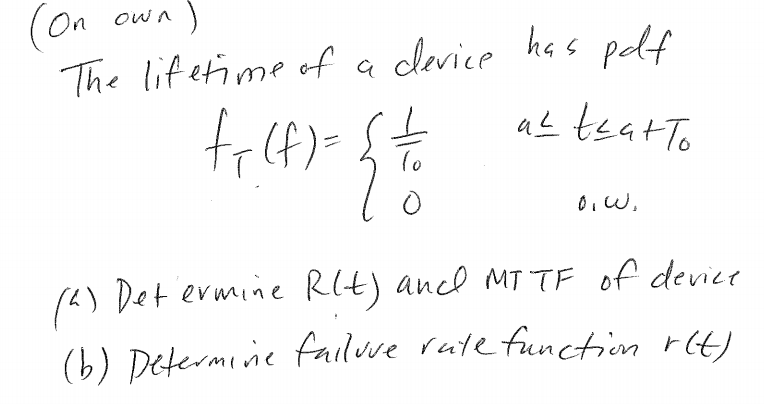 (On own)
The lifetime of a device has pdf
f_T(f) = { 1/T₀   a ≤ t ≤ a+T₀
0   o.w.
(a) Determine R(t) and MTTF of device
(b) Determine failure rate function r(t)